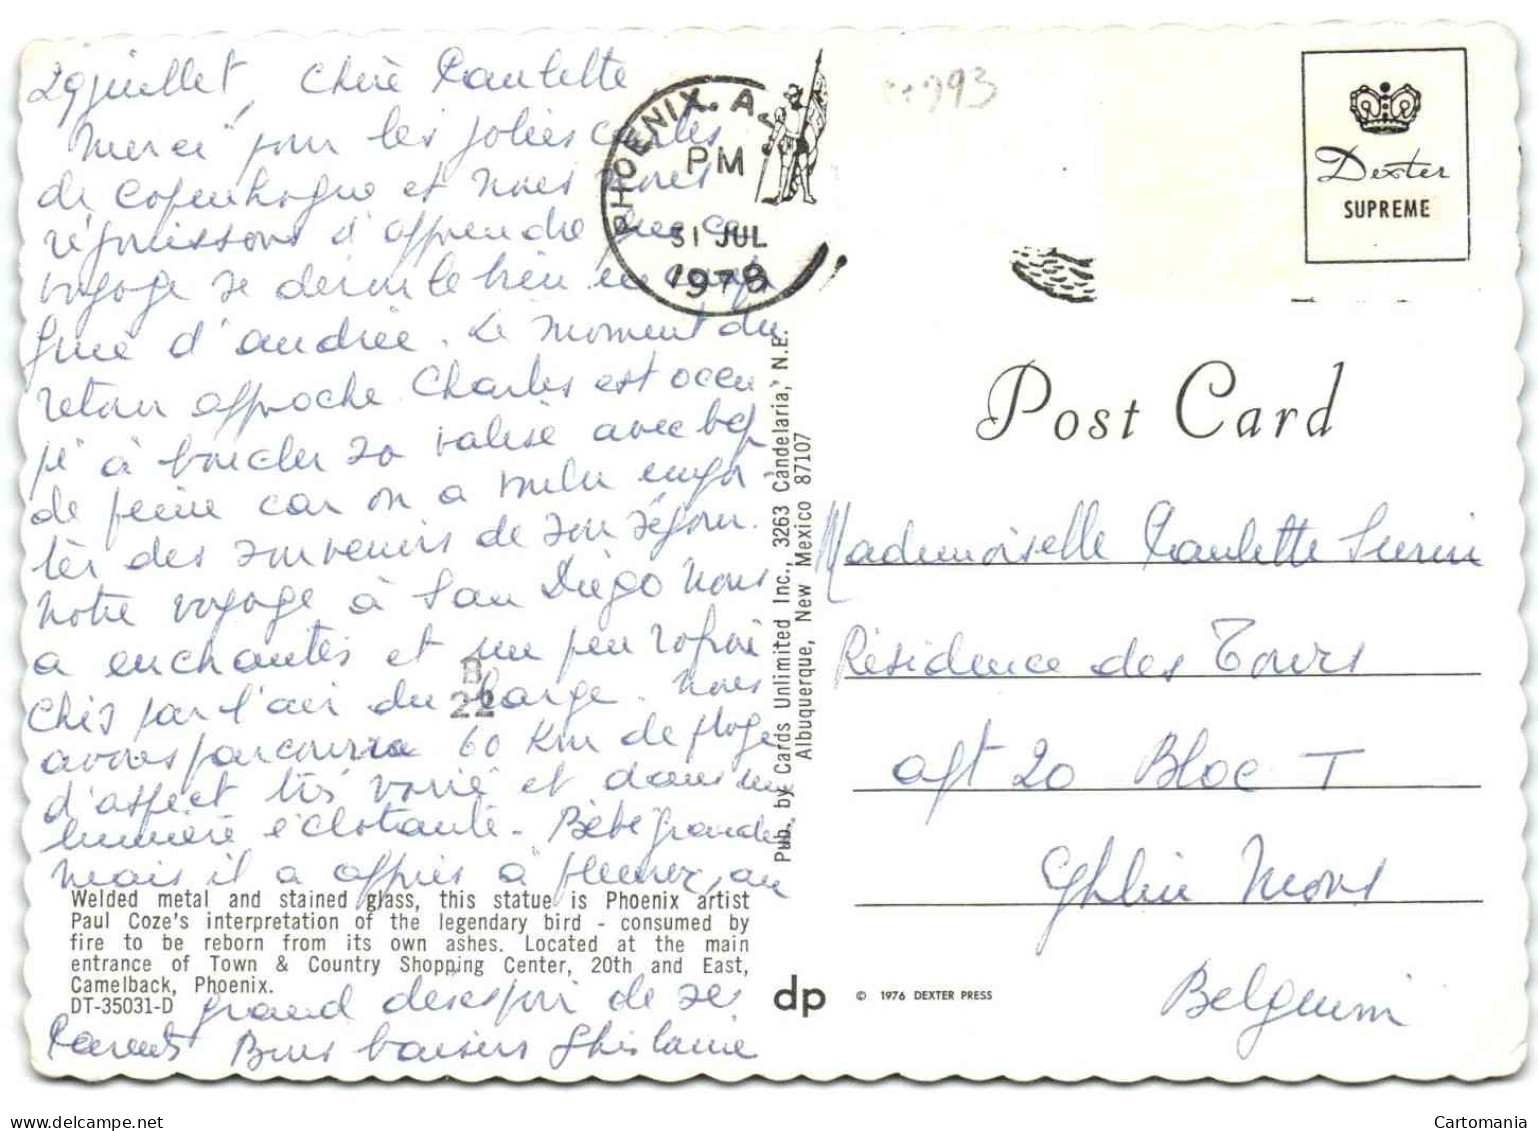 29 juillet, Chère Paulette
Merci pour les jolies cartes
de Copenhague et nous nous
réjouissons d'apprendre que ce
voyage se déroule bien en
d'andrée. Le moment du
retour approche Charles est occu
pé à boucler sa valise avec bcp
de peine car on a voulu empor-
ter des souvenirs de son séjour.
Notre voyage à San Diégo nous
a enchantés et un peu rafraî
chis par l'air du large. Nous
avons parcouru 60 Km de plage
d'aspect très varié et dans une
lumière éclatante - Bébé grandit,
mais il a appris à pleurer, au
grand désespoir de ses
Parents Bons baisers Ghislaine
Welded metal and stained glass, this statue is Phoenix artist
Paul Coze's interpretation of the legendary bird - consumed by
fire to be reborn from its own ashes. Located at the main
entrance of Town & Country Shopping Center, 20th and East,
Camelback, Phoenix.
DT-35031-D
B
22
PHOENIX, A
PM
31 JUL
1978
Pub. by Cards Unlimited Inc., 3263 Candelaria, N.E.
Albuquerque, New Mexico 87107
dp © 1976 DEXTER PRESS
993
Dexter
SUPREME
Post Card
Mademoiselle Paulette
Résidence des Tours
apt 20 Bloc T
Ghlin Mons
Belgium
Cartomania